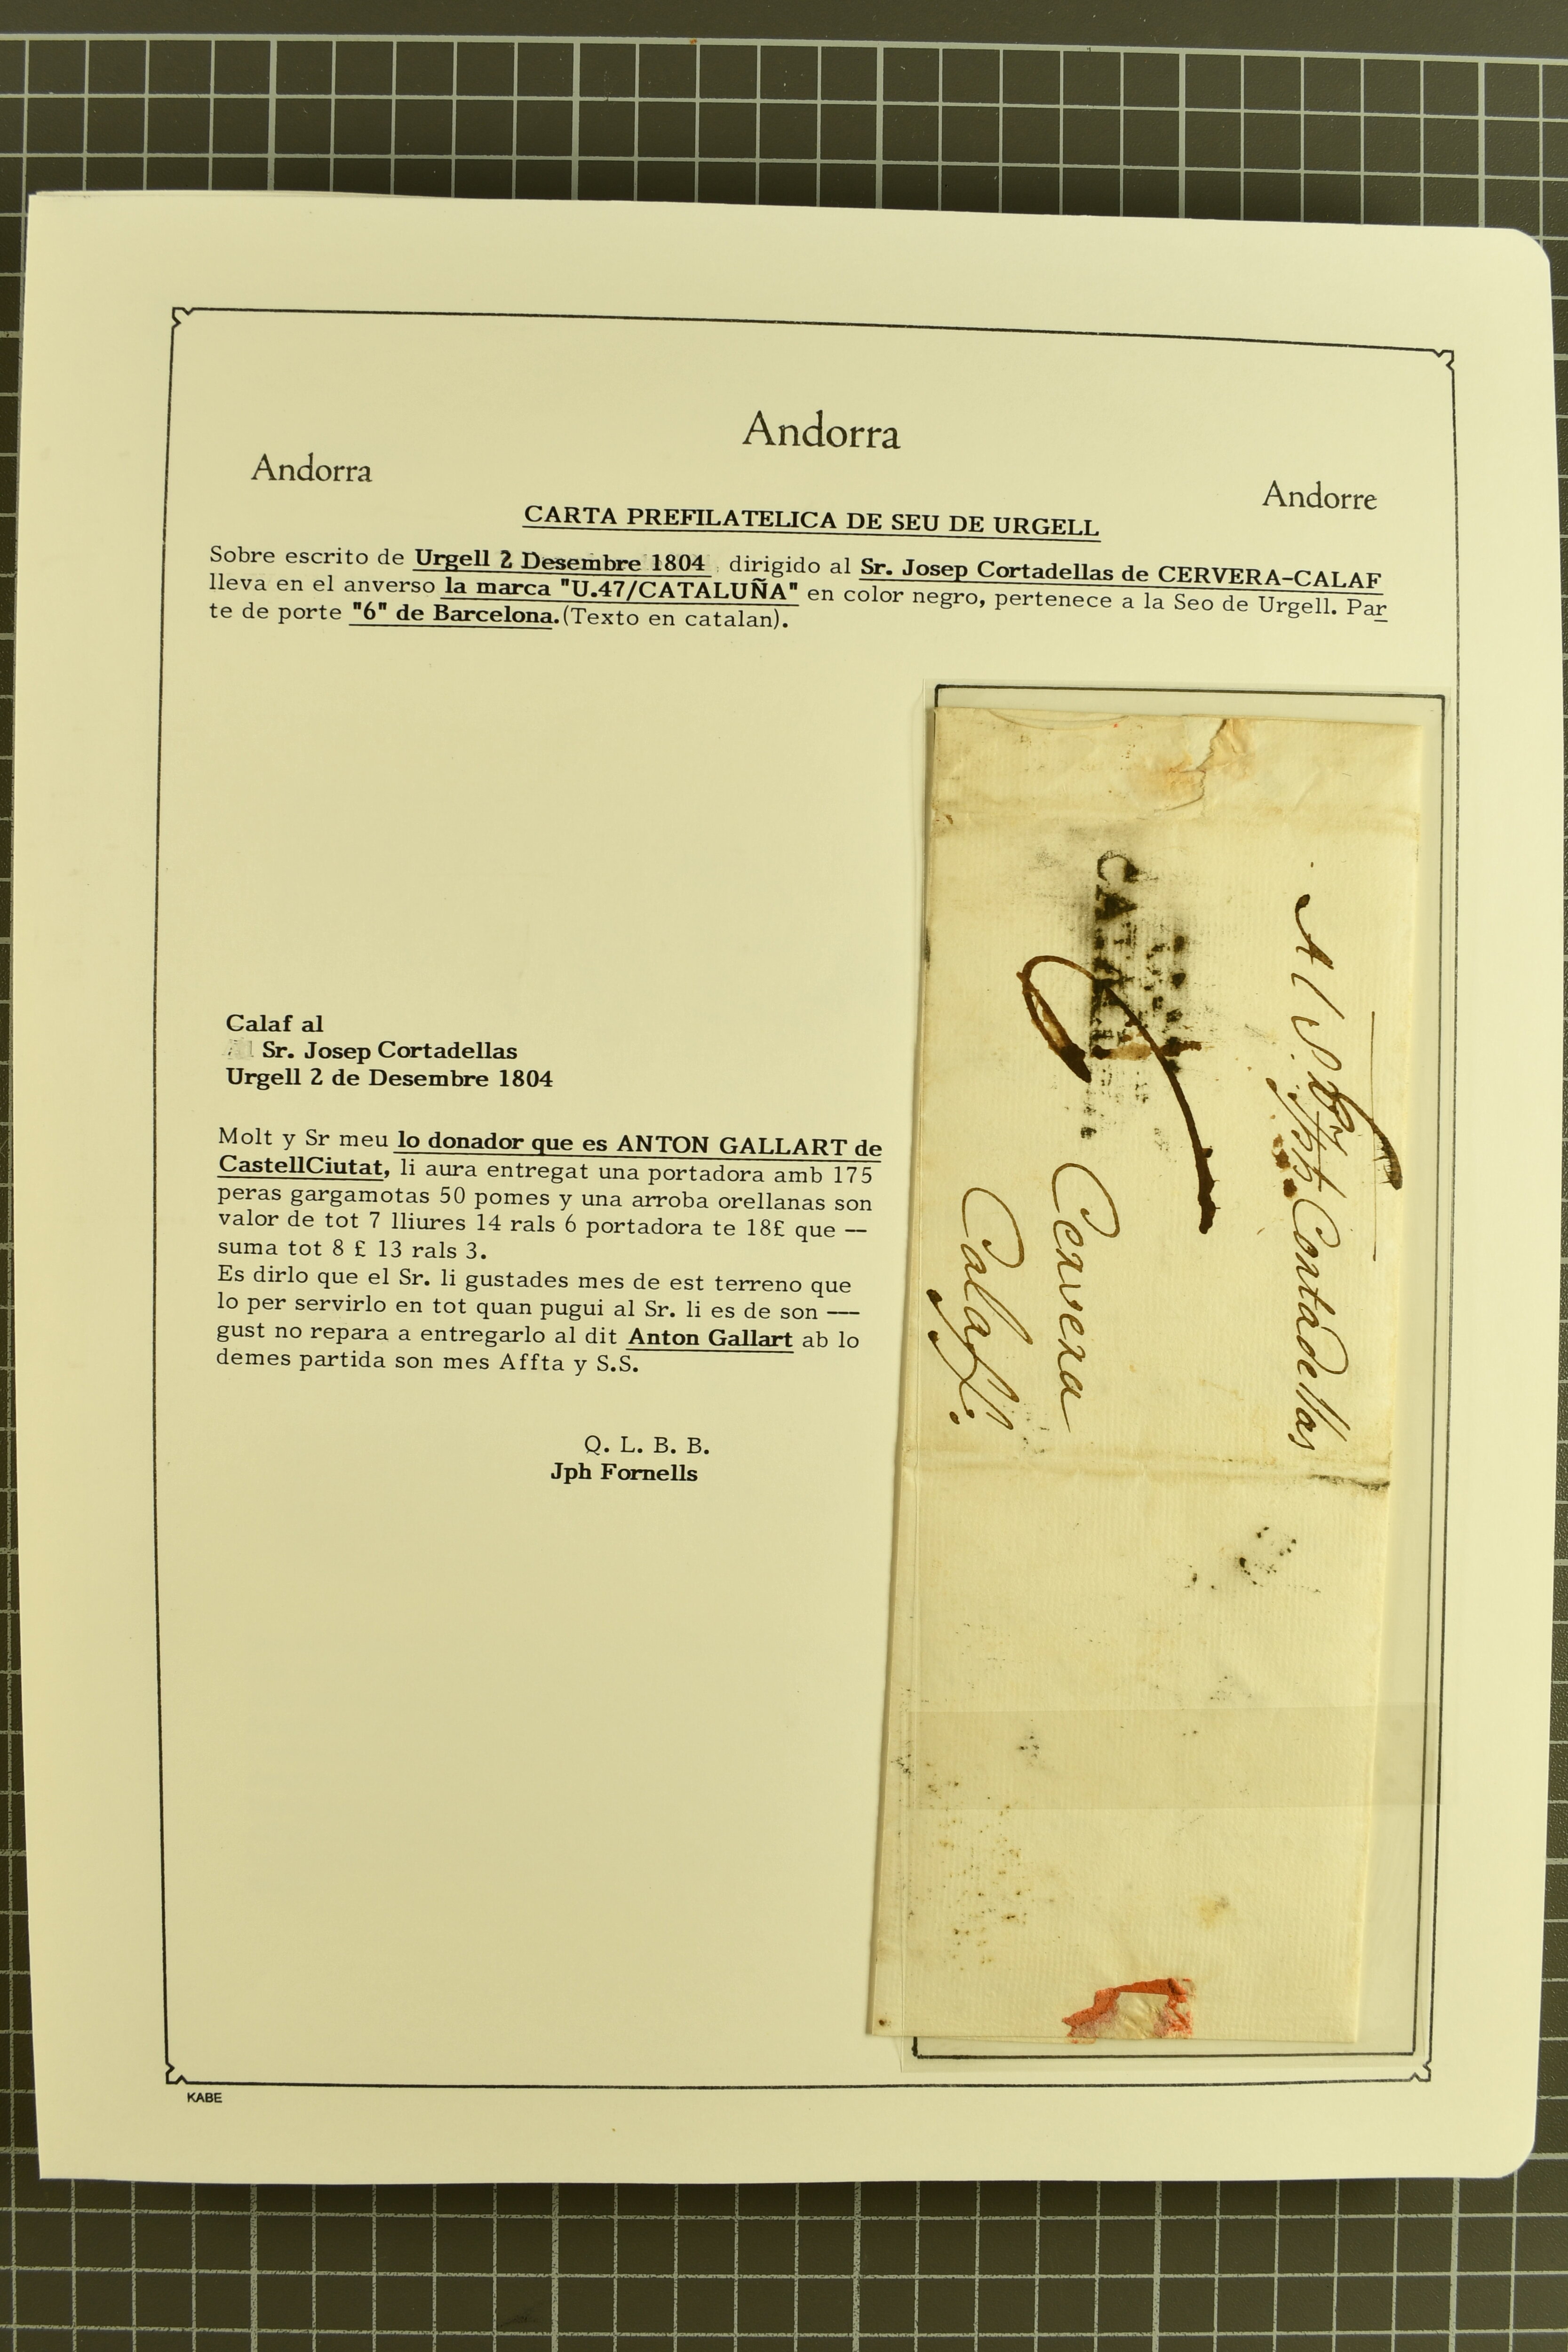 Andorra
Andorra
Andorre
CARTA PREFILATELICA DE SEU DE URGELL
Sobre escrito de Urgell 2 Desembre 1804 dirigido al Sr. Josep Cortadellas de CERVERA-CALAF
lleva en el anverso la marca "U.47/CATALUÑA" en color negro, pertenece a la Seo de Urgell. Par
te de porte "6" de Barcelona.(Texto en catalan).
Calaf al
Sr. Josep Cortadellas
Urgell 2 de Desembre 1804
Molt y Sr meu lo donador que es ANTON GALLART de
CastellCiutat, li aura entregat una portadora amb 175
peras gargamotas 50 pomes y una arroba orellanas son
valor de tot 7 lliures 14 rals 6 portadora te 18£ que --
suma tot 8 £ 13 rals 3.
Es dirlo que el Sr. li gustades mes de est terreno que
lo per servirlo en tot quan pugui al Sr. li es de son ---
gust no repara a entregarlo al dit Anton Gallart ab lo
demes partida son mes Affta y S.S.
Q. L. B. B.
Jph Fornells
Al Sr Cortadellas
6
Cervera
Calaf.
KABE